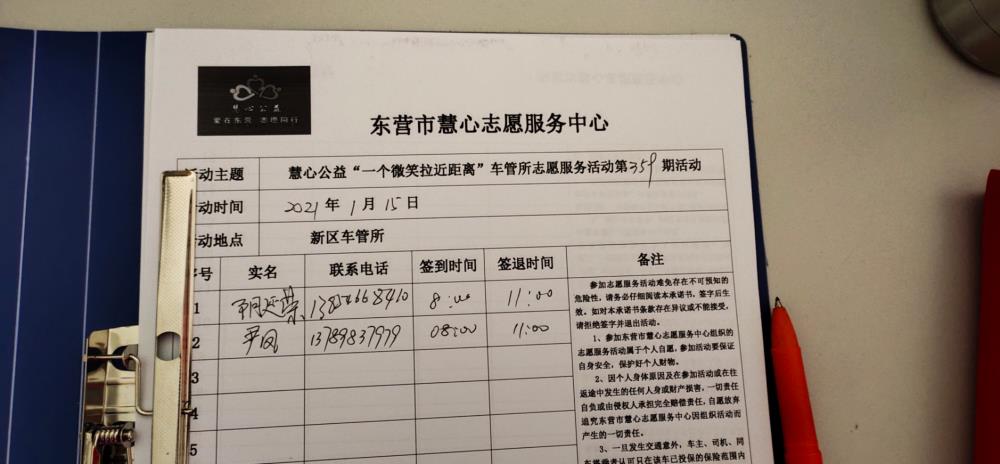 慧心公益
爱在东营 志愿同行
东营市慧心志愿服务中心
活动主题 慧心公益“一个微笑拉近距离”车管所志愿服务活动第359期活动
动时间 2021年1月15日
动地点 新区车管所
号 实名 联系电话 签到时间 签退时间 备注
1 8:00 11:00
2 13789837979 08:00 11:00
3
4
5
参加志愿服务活动难免存在不可预知的
危险性，请务必仔细阅读本承诺书，签字后生
效。如对本承诺书条款存在异议或不能接受，
请拒绝签字并退出活动。
1、参加东营市慧心志愿服务中心组织的
志愿服务活动属于个人自愿，参加活动要保证
自身安全，保护好个人财物。
2、因个人身体原因及在参加活动或在往
返途中发生的任何人身或财产损害，一切责任
自负或由侵权人承担完全赔偿责任，自愿放弃
追究东营市慧心志愿服务中心因组织活动而
产生的一切责任。
3、一旦发生交通意外，车主、司机、同
车乘坐者认可只在该车已投保的保险范围内